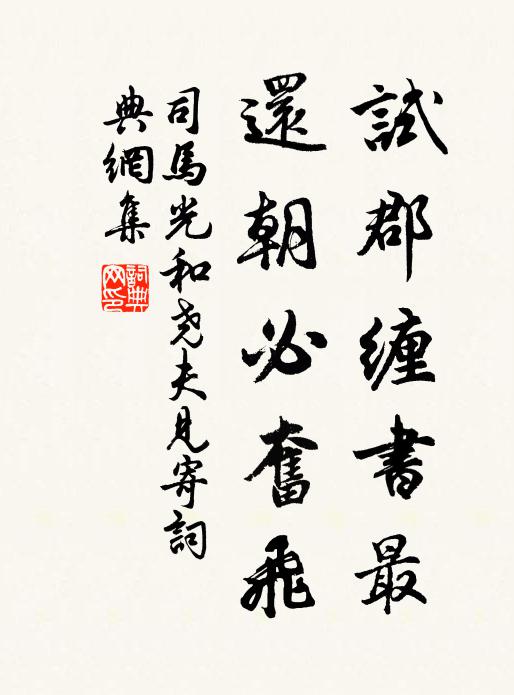 試郡纏書最
還朝必奮飛
司馬光和尧夫見寄詞
典網集
詞典网印